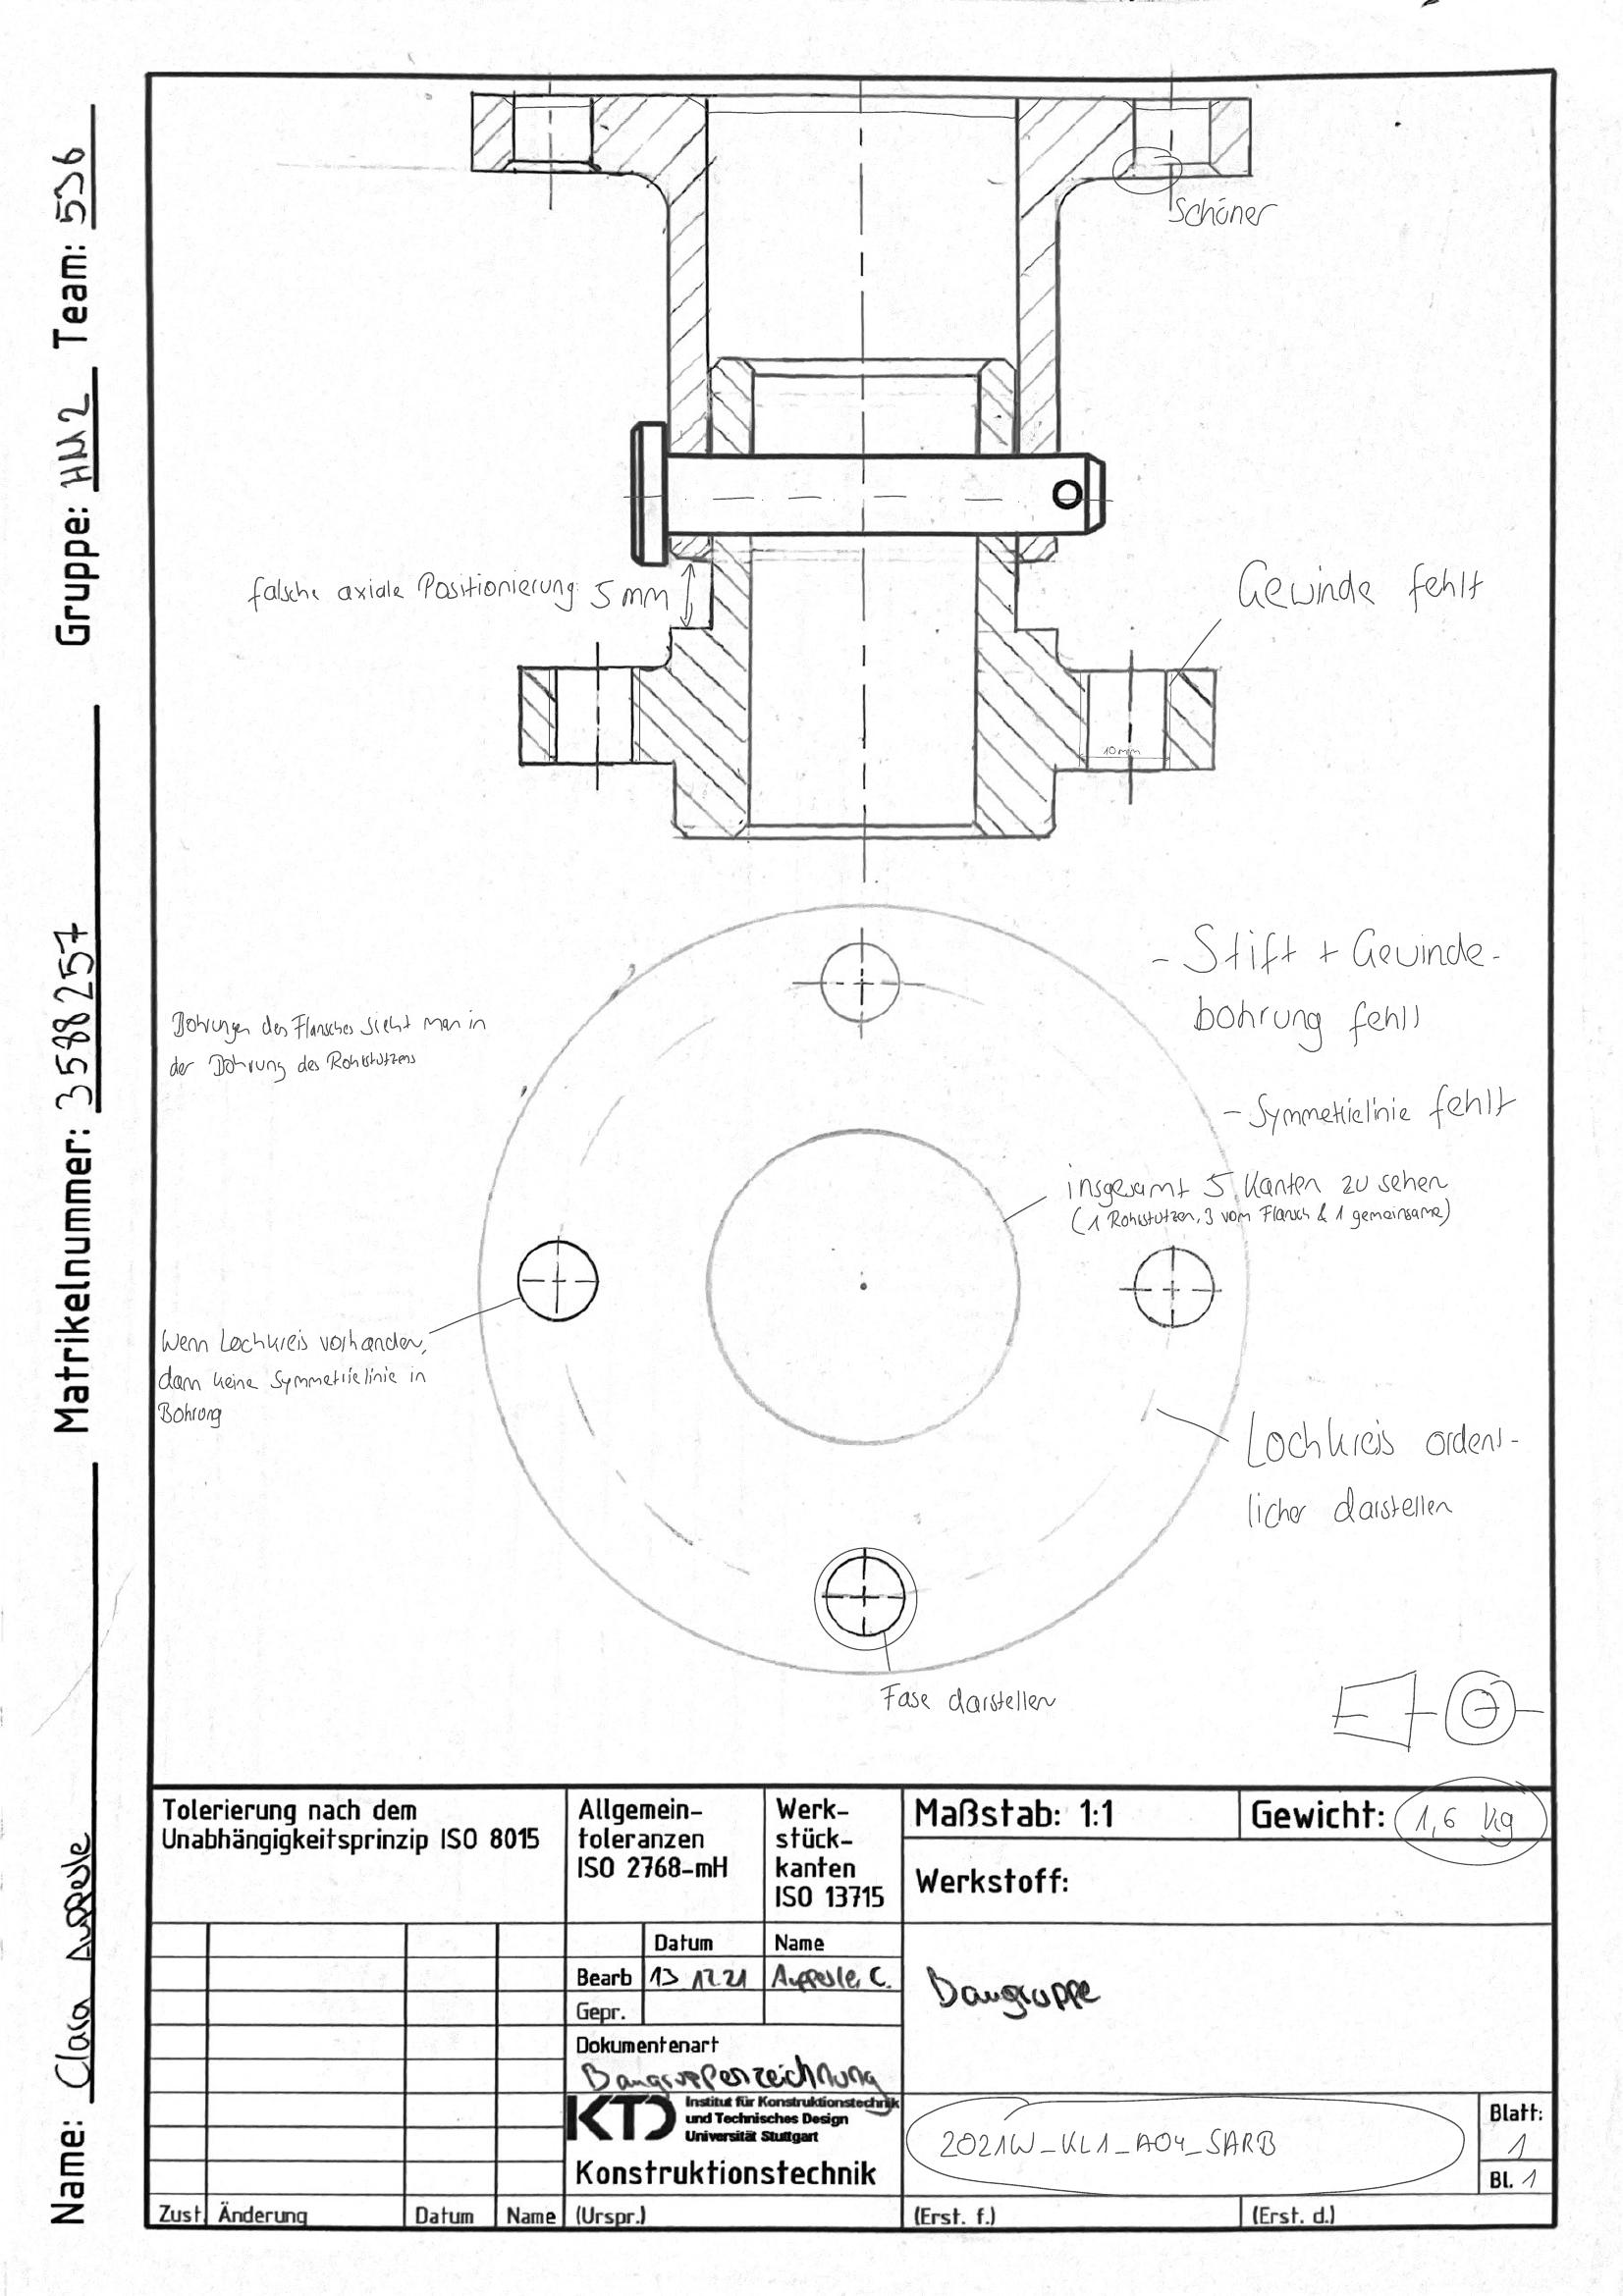 Name: Clara Auppele Matrikelnummer: 3588257 Gruppe: HM2 Team: 536
Schöner
falsche axiale Positionierung: 5 mm
Gewinde fehlt
10mm
- Stift + Gewinde-
bohrung fehlt
Bohrungen des Flansches sieht man in
der Bohrung des Rohrstutzens
- Symmetrielinie fehlt
insgesamt 5 Kanten zu sehen
(1 Rohrstutzen, 3 vom Flansch & 1 gemeinsame)
Wenn Lochkreis vorhanden,
dann keine Symmetrielinie in
Bohrung
Lochkreis ordent-
licher darstellen
Fase darstellen
Tolerierung nach dem
Unabhängigkeitsprinzip ISO 8015
Allgemein-
toleranzen
ISO 2768-mH
Werk-
stück-
kanten
ISO 13715
Maßstab: 1:1
Gewicht: 1,6 kg
Werkstoff:
Datum Name
Bearb 13.12.21 C.
Gepr.
Baugruppe
Dokumentenart
Baugruppenzeichnung
KTD Institut für Konstruktionstechnik
und Technisches Design
Universität Stuttgart
Konstruktionstechnik
2021W_KL1_A04_SARB
Blatt:
1
Bl. 1
Zust. Änderung Datum Name (Urspr.) (Erst. f.) (Erst. d.)